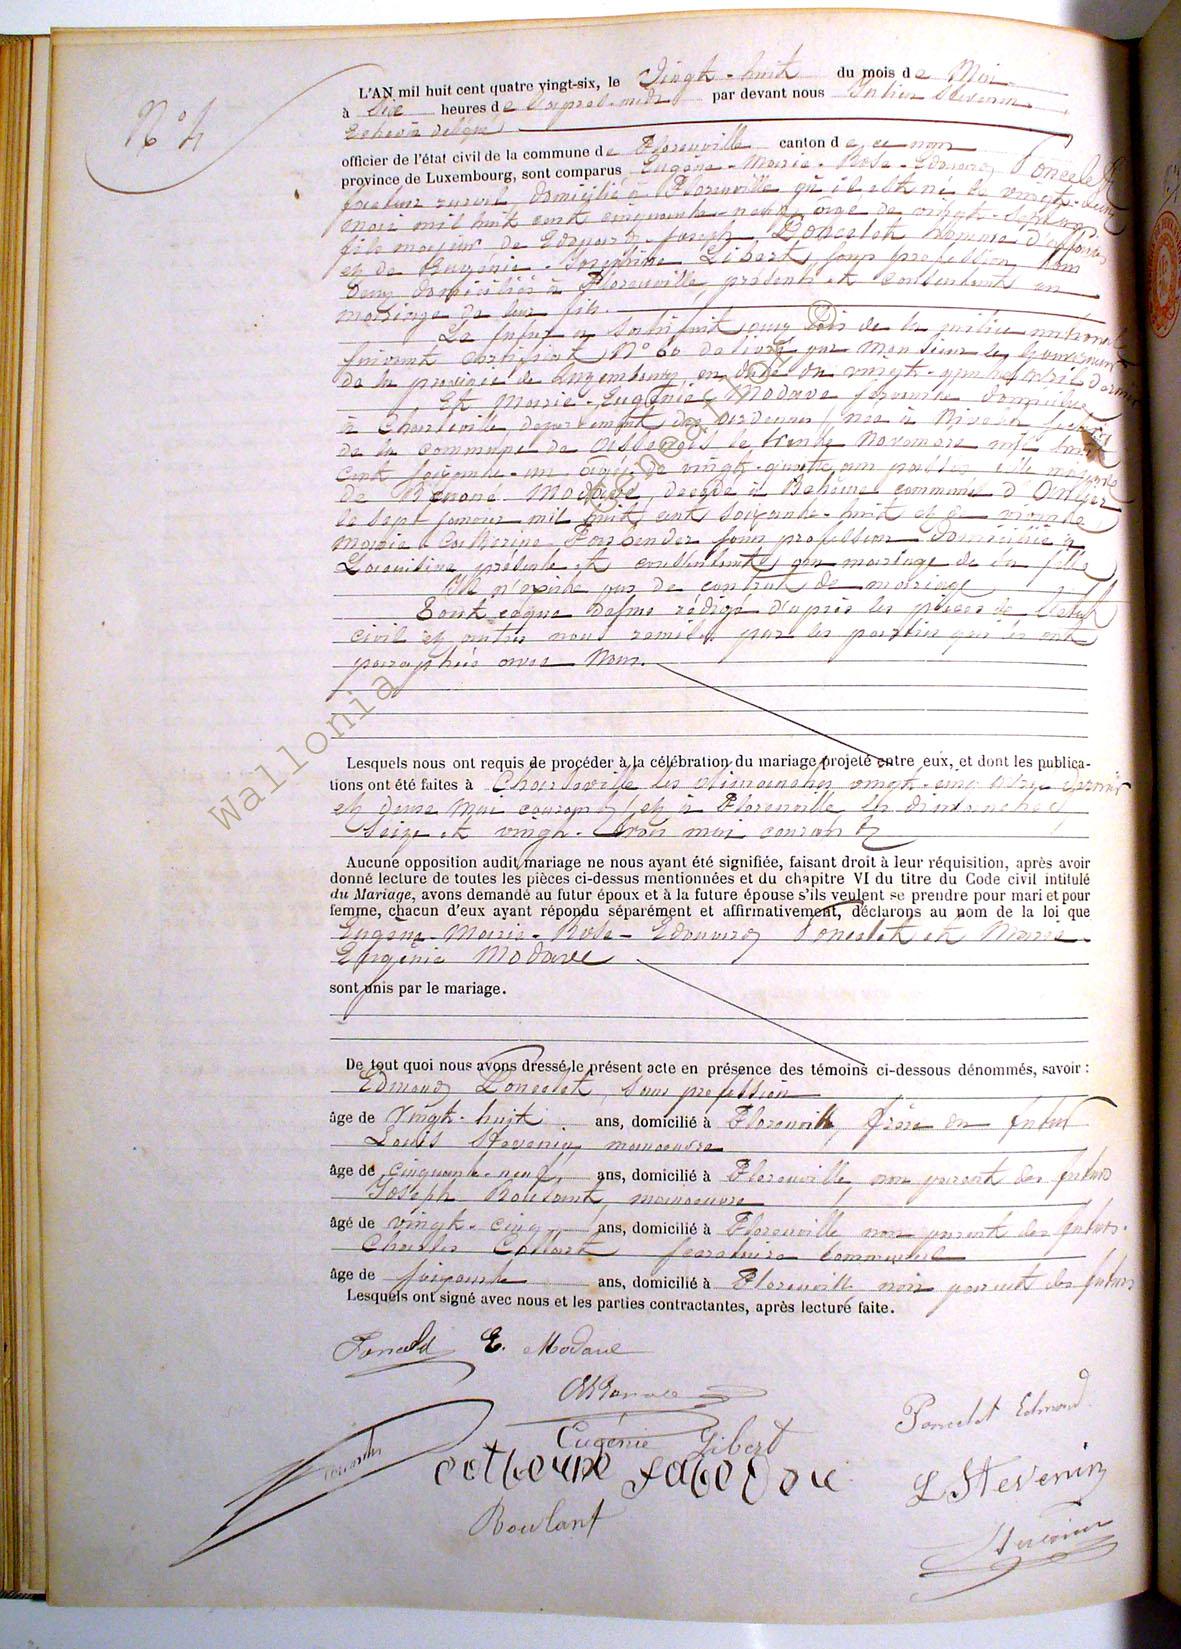 N° 4
L'AN mil huit cent quatre vingt-six, le Vingt-huit du mois de Mai
à six heures de l'après-midi par devant nous Julien Stevenin
Echevin délégué
officier de l'état civil de la commune de Florenville canton de ce nom
province de Luxembourg, sont comparus Eugène-Marie-Rose-Edouard Poncelet
facteur rural domicilié à Florenville où il est né le vingt-deux
mai mil huit cent cinquante-neuf âgé de vingt-sept ans
fils majeur de Edouard-Joseph Poncelet homme d'affaires
et de Eugénie-Joséphine Gibert sans profession tous
deux domiciliés à Florenville, présents et consentant au
mariage de leur fils.
Le futur a satisfait aux lois de la milice nationale
suivant certificat N° 60 délivré par Monsieur le Gouverneur
de la province de Luxembourg en date du vingt-quatre avril dernier
Et Marie-Eugénie Modave servante domiciliée
à Charleville département des Ardennes née à
de la commune de le trente Novembre mil huit
cent soixante-un âgée de vingt-quatre ans passés fille majeure
de Modave, décédé à Behême commune d'Anlier
le sept janvier mil huit cent soixante-huit et de vivante
Marie-Catherine sans profession domiciliée à
présente et consentante au mariage de sa fille
Il n'existe pas de contrat de mariage
Tout ce que dessus rédigé d'après les pièces de l'état
civil et autres nous remises par les parties qui les ont
paraphées avec Nous.
Lesquels nous ont requis de procéder à la célébration du mariage projeté entre eux, et dont les publica-
tions ont été faites à Charleville les dimanches vingt-cinq avril dernier
et deux Mai courant et à Florenville les dimanches
seize et vingt-trois mai courant
Aucune opposition audit mariage ne nous ayant été signifiée, faisant droit à leur réquisition, après avoir
donné lecture de toutes les pièces ci-dessus mentionnées et du chapitre VI du titre du Code civil intitulé
du Mariage, avons demandé au futur époux et à la future épouse s'ils veulent se prendre pour mari et pour
femme, chacun d'eux ayant répondu séparément et affirmativement, déclarons au nom de la loi que
Eugène-Marie-Rose-Edouard Poncelet et Marie
Eugénie Modave
sont unis par le mariage.
De tout quoi nous avons dressé le présent acte en présence des témoins ci-dessous dénommés, savoir :
Edmond Poncelet, sans profession
âge de Vingt-huit ans, domicilié à Florenville, frère du futur
Louis Stevenin manoeuvre
âge de cinquante-neuf ans, domicilié à Florenville, non parent des futurs
Joseph Boulant, manoeuvre
âgé de vingt-cinq ans, domicilié à Florenville non parent des futurs.
Charles Collart secrétaire communal
âge de soixante ans, domicilié à Florenville non parent des futurs
Lesquels ont signé avec nous et les parties contractantes, après lecture faite.
Poncelet E. Modave
Eugénie Gibert
Poncelet Edmond
catherine
L Stevenin
Boulant
Stevenin
Wallonia